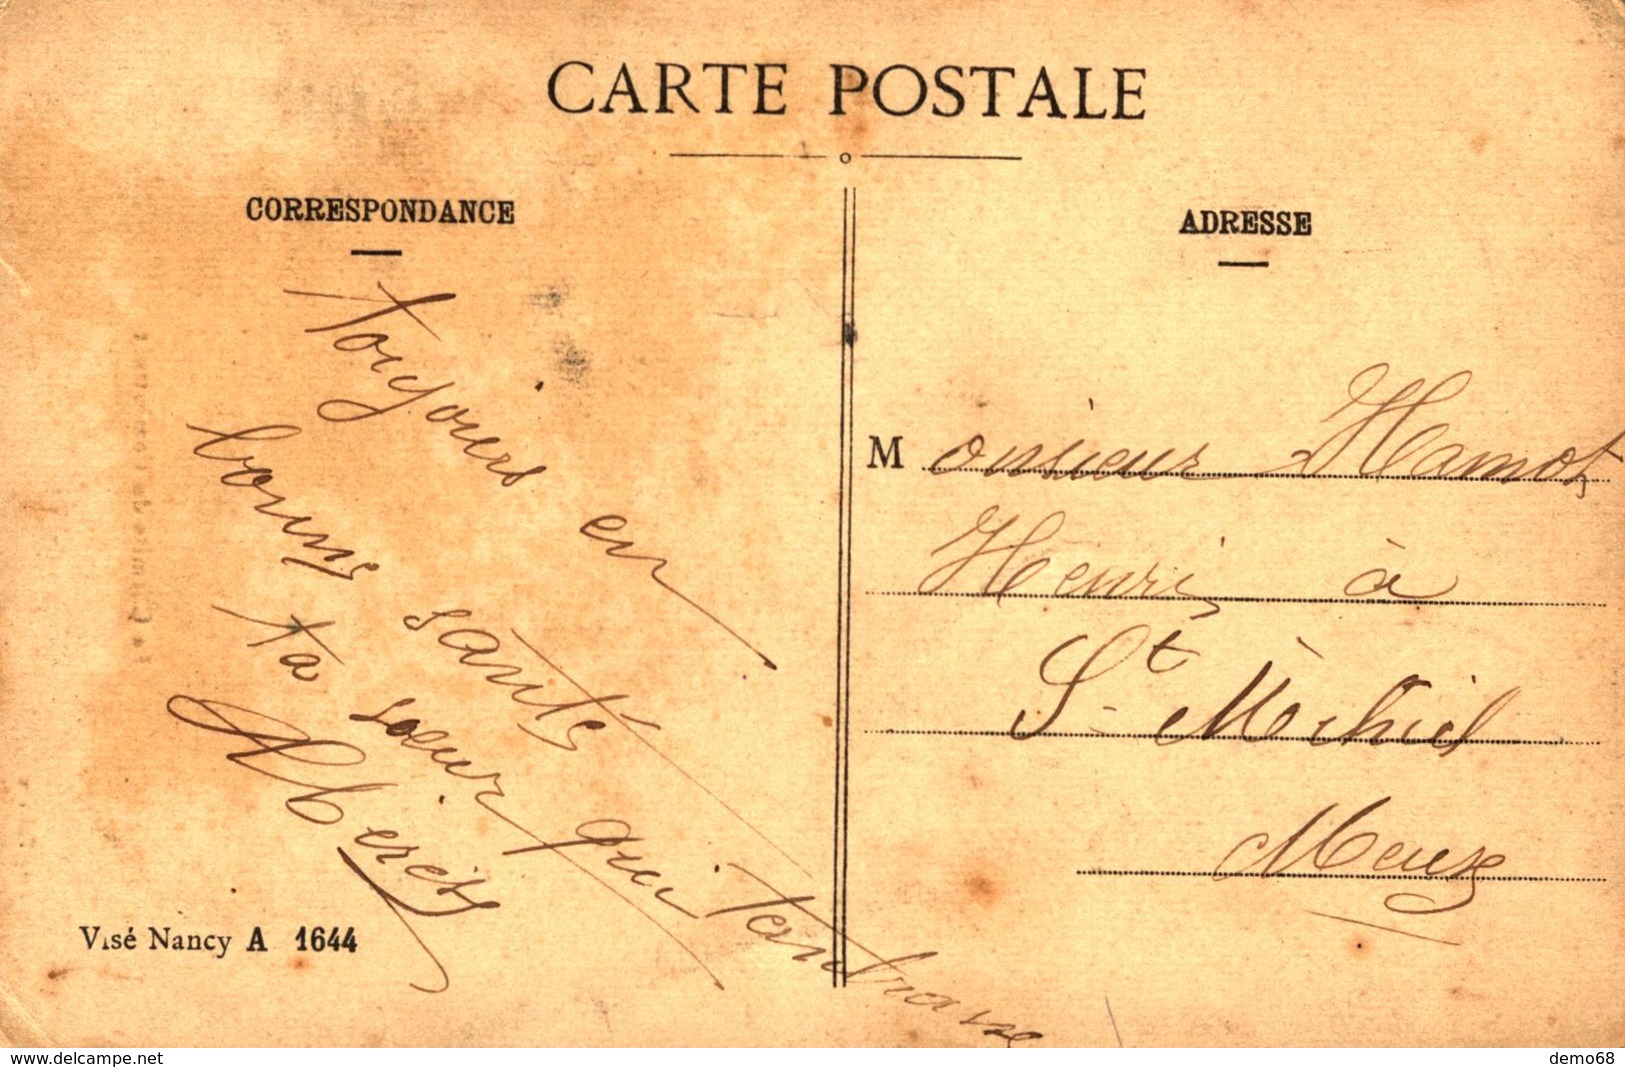 CARTE POSTALE
CORRESPONDANCE
toujours en
bonne santé
ta soeur qui t'embrasse
Visé Nancy A 1644
ADRESSE
Monsieur Hamot
Henri à
St Mihiel
Meuse
www.delcampe.net
demo68